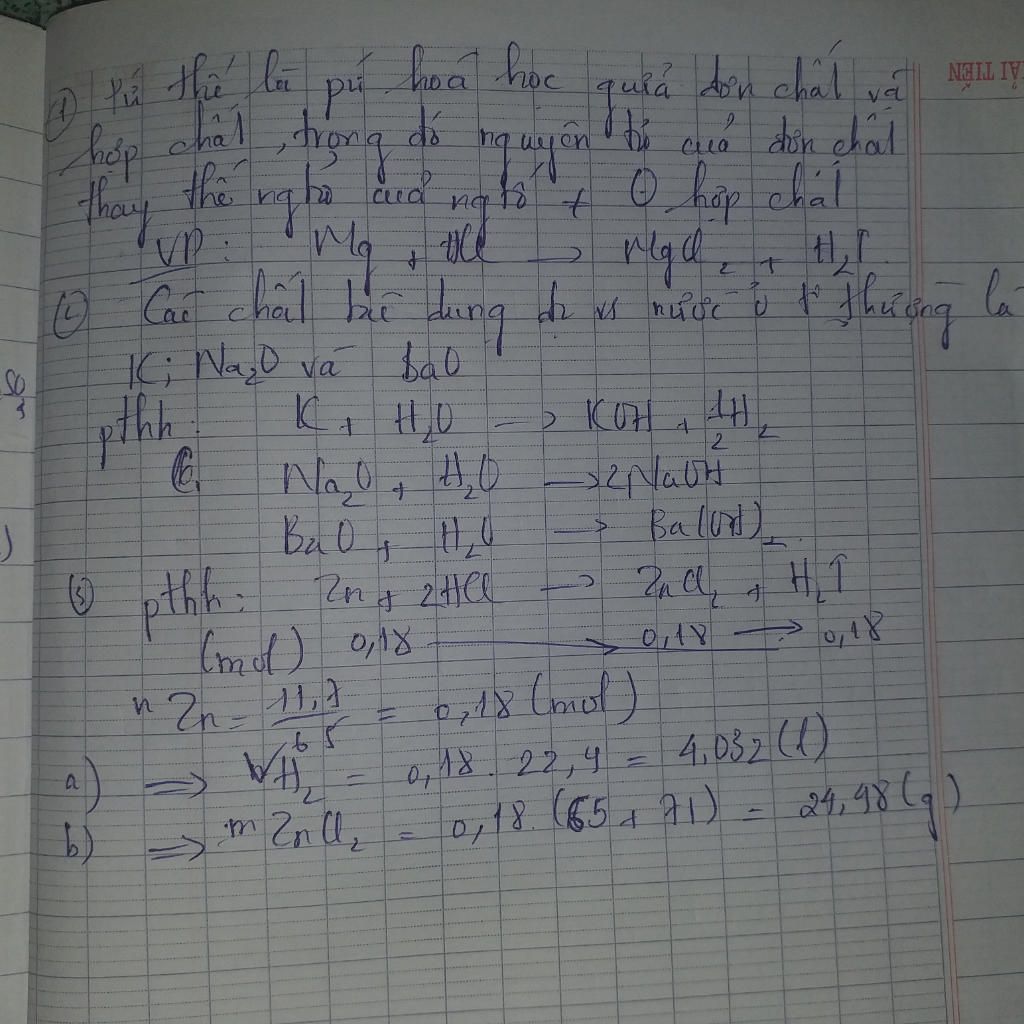 ① Pứ thế là pứ hoá học giữa đơn chất và
hợp chất, trong đó nguyên tử của đơn chất
thay thế ngtử của ngtố + ① hợp chất
VD: Mg + HCl → MgCl2 + H2↑
② Các chất tác dụng đc vs nước ở t° thường là
K; Na2O và BaO
pthh: K + H2O → KOH + 1/2H2
Na2O + H2O → 2NaOH
BaO + H2O → Ba(OH)2
③ pthh: Zn + 2HCl → ZnCl2 + H2↑
(mol) 0,18 → 0,18 → 0,18
nZn = 11,7/65 = 0,18 (mol)
a) ⇒ VH2 = 0,18 . 22,4 = 4,032 (l)
b) ⇒ mZnCl2 = 0,18. (65 + 71) = 24,48 (g)
ẢI TIẾN
SO3
)